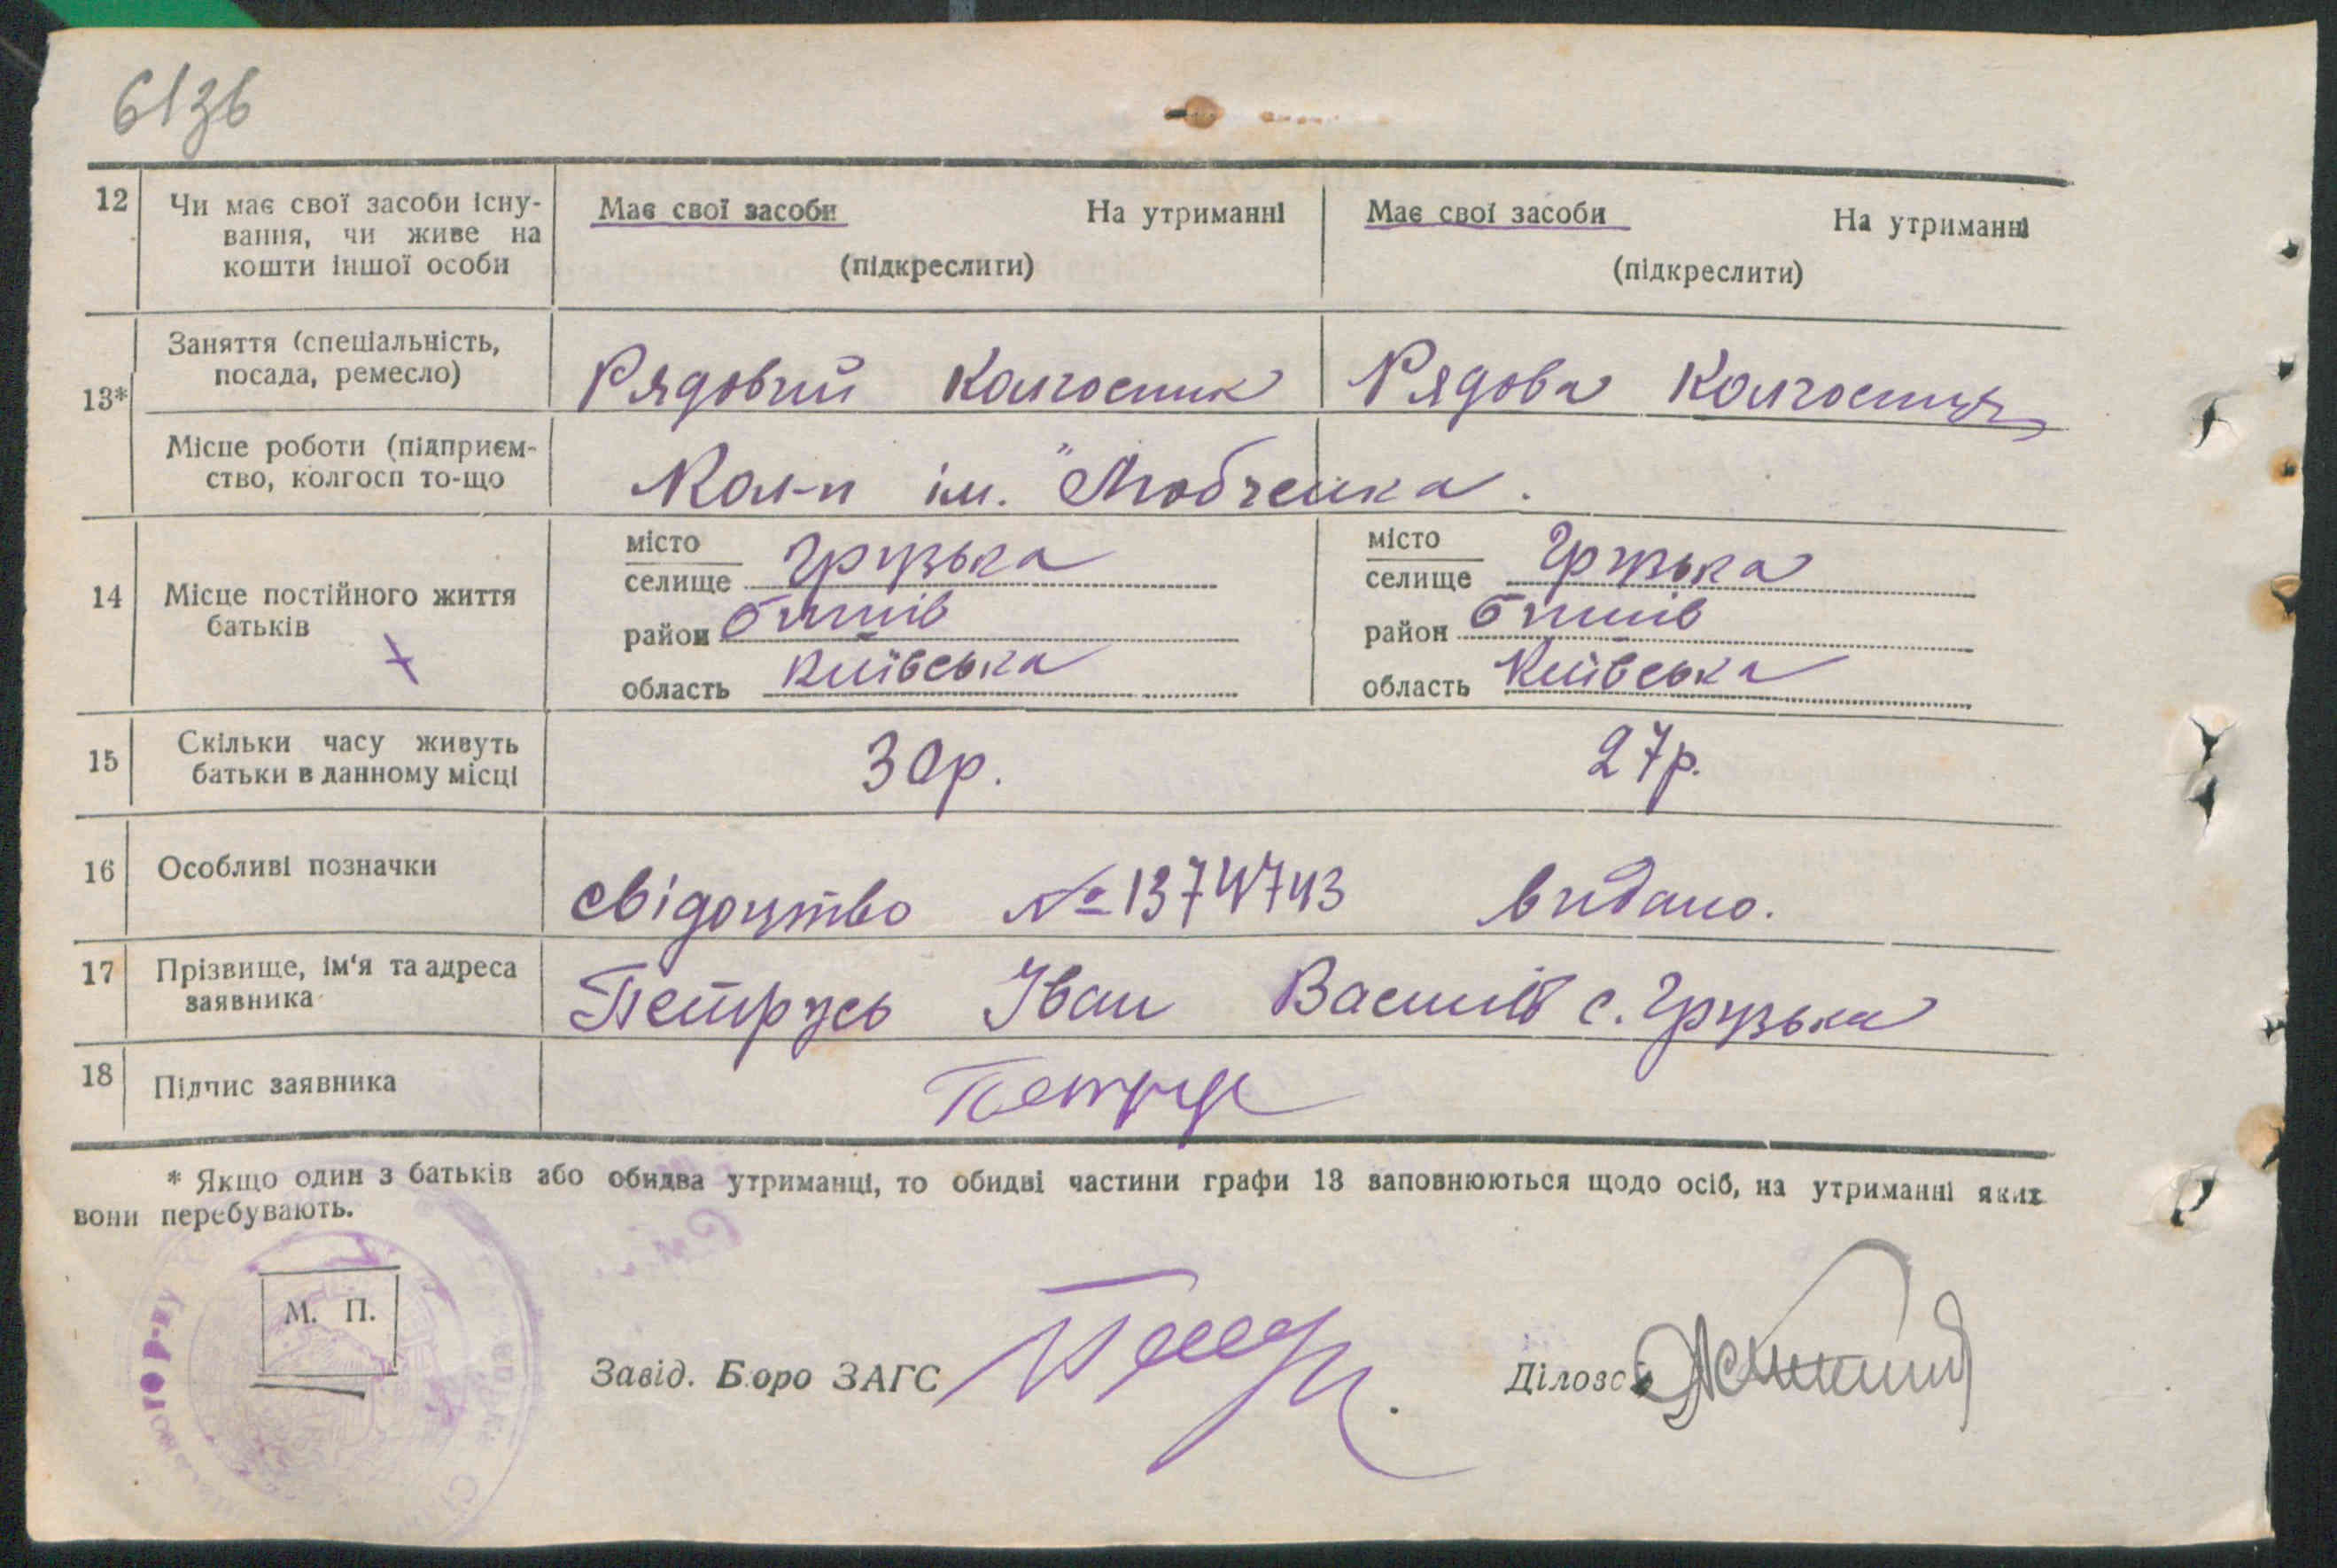 61зв
12 Чи має свої засоби існу-
вання, чи живе на
кошти іншої особи
Має свої засоби На утриманні
(підкреслити)
Має свої засоби На утриманні
(підкреслити)
13*
Заняття (спеціальність,
посада, ремесло)
Рядовий Колгосник Рядова Колгосниця
Місце роботи (підприєм-
ство, колгосп то-що
Кол-п ім. "Любченка.
14 Місце постійного життя
батьків
місто
селище Грузька
район бишів
область Київська
місто
селище Грузька
район бишів
область Київська
15 Скільки часу живуть
батьки в данному місці
30р. 27р.
16 Особливі позначки
свідоцтво №1374743 видано.
17 Прізвище, ім'я та адреса
заявника
Петрусь Іван Василів с. Грузька
18 Підпис заявника
Петрусь
* Якщо один з батьків або обидва утриманці, то обидві частини графи 13 заповнюються щодо осіб, на утриманні яких
вони перебувають.
М. П.
Завід. Бюро ЗАГС
Діловод